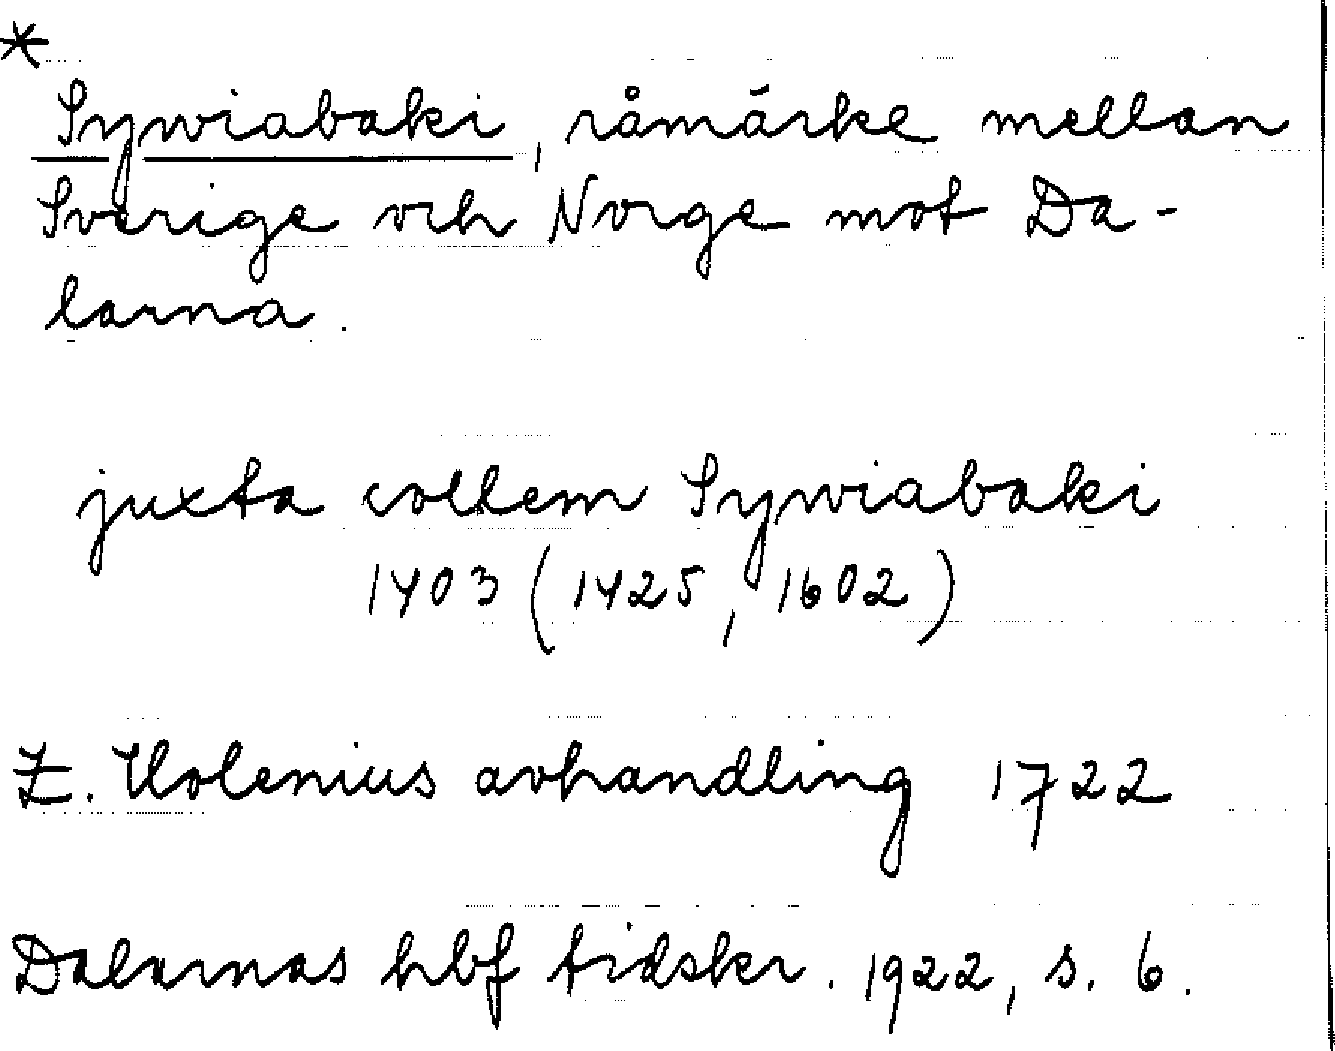 *
Sywiabaki, råmärke mellan
Sverige och Norge mot Da-
larna.
juxta collem Sywiabaki
1403 (1425, 1602)
Z. Holenius avhandling 1722
Dalarnas hbf tidskr. 1922, s. 6.